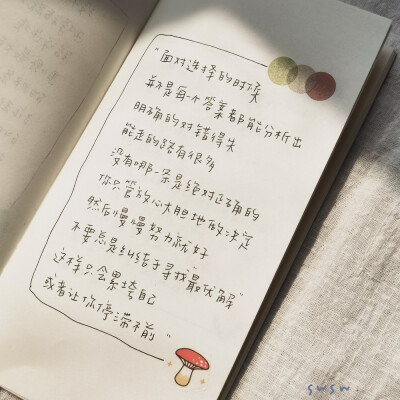 "面对选择的时候
并不是每个答案都能分析出
明确的对错得失
能走的路有很多
没有哪一条是绝对正确的
你只管放心大胆地做决定
然后慢慢努力就好
不要总是纠结于寻找"最优解"
这样只会累垮自己
或者让你停滞不前"
swsw.